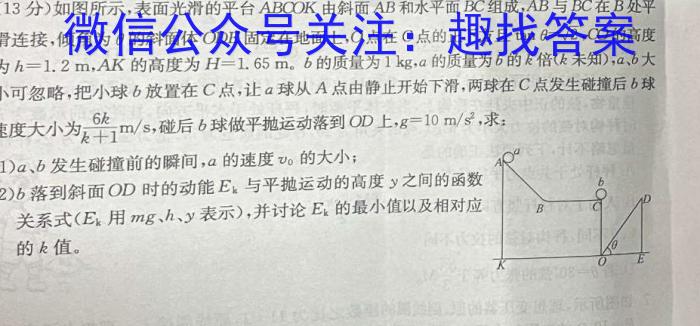 (13分)如图所示,表面光滑的平台ABCOK由斜面AB和水平面BC组成,AB与BC在B处平
滑连接,
微信公众号关注:趣找答案
为h=1.2 m,AK的高度为H=1.65 m。b的质量为1 kg,a的质量为b的k倍(k未知),a、b大
小可忽略,把小球b放置在C点,让a球从A点由静止开始下滑,两球在C点发生碰撞后b球
速度大小为6k/(k+1) m/s,碰后b球做平抛运动落到OD上,g=10 m/s²,求:
1)a、b发生碰撞前的瞬间,a的速度v₀的大小;
2)b落到斜面OD时的动能Eₖ与平抛运动的高度y之间的函数
关系式(Eₖ用mg、h、y表示),并讨论Eₖ的最小值以及相对应
的k值。
a
A
b
B
C
D
θ
K
O
E